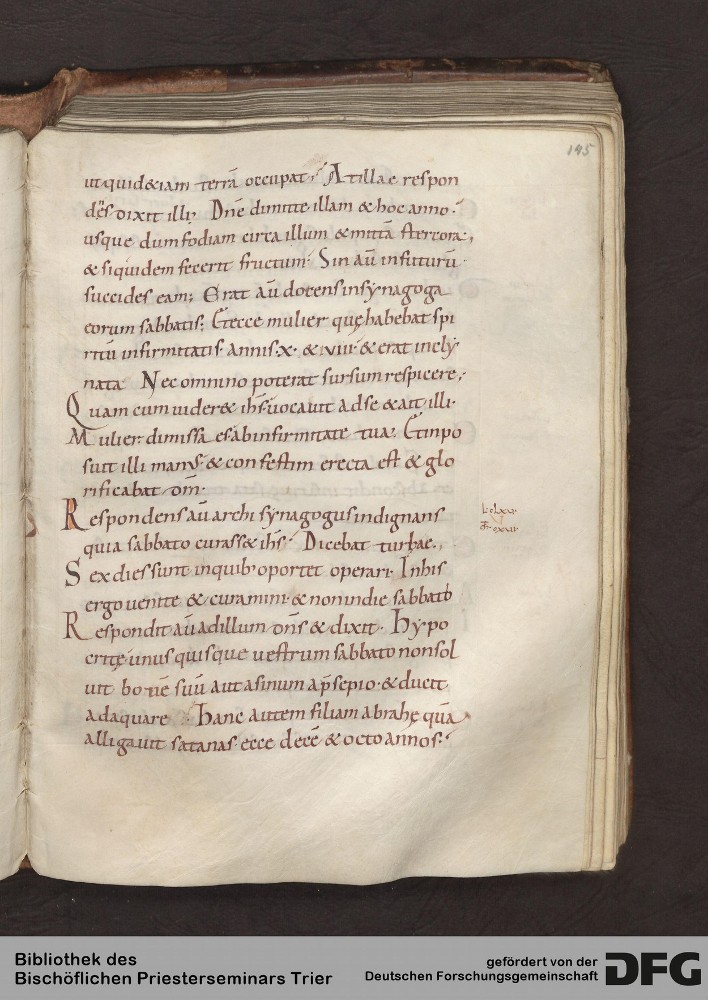 145
ut quid &iam terrā occupat; At illae respon
dēs dixit illi; Dn̄e dimitte illam & hoc anno;
usque dum fodiam circa illum & mittā stercora;
& siquidem fecerit fructum· Sin aū in futurū·
succides eam; Erat aū docens in synagoga
eorum sabbatis; Et ecce mulier quę habebat spi
ritū infirmitatis· annis·x· & viii· & erat incly
nata· Nec omnino poterat sursum respicere;
Quam cum uider& ih̄s· uocauit ad se & ait illi·
Mulier dimissa es ab infirmitate tua· Et inpo
suit illi manus & confestim erecta est & glo
rificabat dm̄·
Respondens aū archisynagogus indignans
quia sabbato curass& ih̄s· Dicebat turbae·,
Sex dies sunt in quib' oportet operari· In his
ergo uenite & curamini· & non in die sabbati
Respondit aū ad illum dn̄s & dixit· Hypo
critę unus quisque uestrum sabbato non sol
uit bouē suū aut asinum a p̄sepio· & ducit
adaquare· Hanc autem filiam abrahę quā
alligauit satanas· ecce decē & octo annos·
Bibliothek des
Bischöflichen Priesterseminars Trier
gefördert von der
Deutschen Forschungsgemeinschaft
DFG